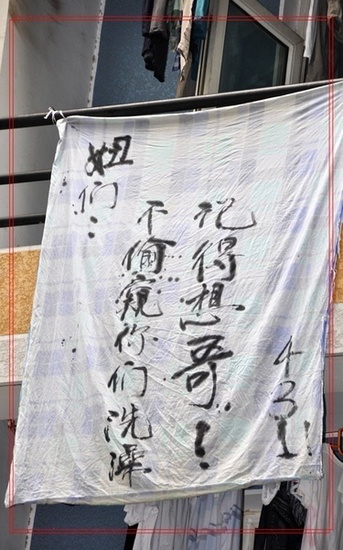 妞们:
不偷窥你们洗澡
记得想哥!